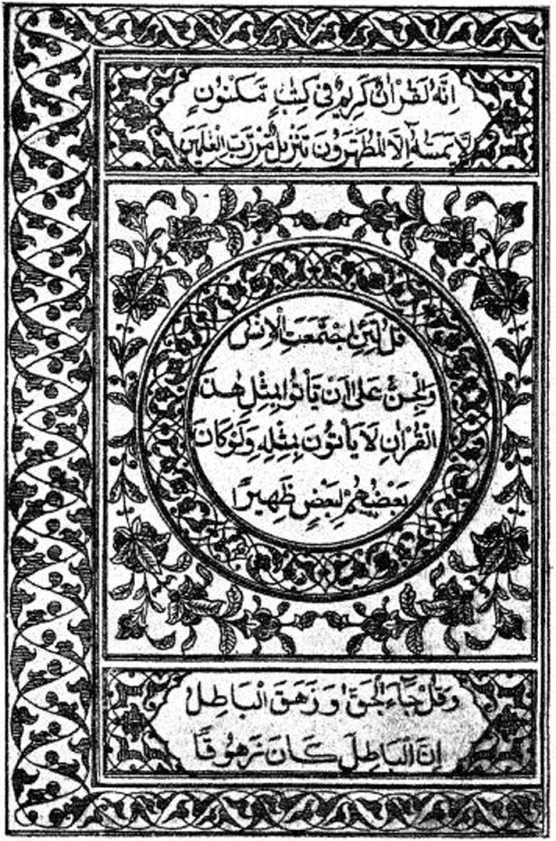 اِنَّهُ لَقُرْاٰنٌ كَرِيمٌ فِي كِتٰبٍ مَكْنُونٍ
لَا يَمَسُّهُ اِلَّا الْمُطَهَّرُونَ تَنْزِيلٌ مِنْ رَبِّ الْعٰلَمِينَ
قُلْ لَئِنِ اجْتَمَعَتِ الْاِنْسُ
وَالْجِنُّ عَلٰى اَنْ يَأْتُوا بِمِثْلِ هٰذَا
الْقُرْاٰنِ لَا يَأْتُونَ بِمِثْلِهِ وَلَوْ كَانَ
بَعْضُهُمْ لِبَعْضٍ ظَهِيرًا
وَقُلْ جَاءَ الْحَقُّ وَزَهَقَ الْبَاطِلُ
اِنَّ الْبَاطِلَ كَانَ زَهُوقًا